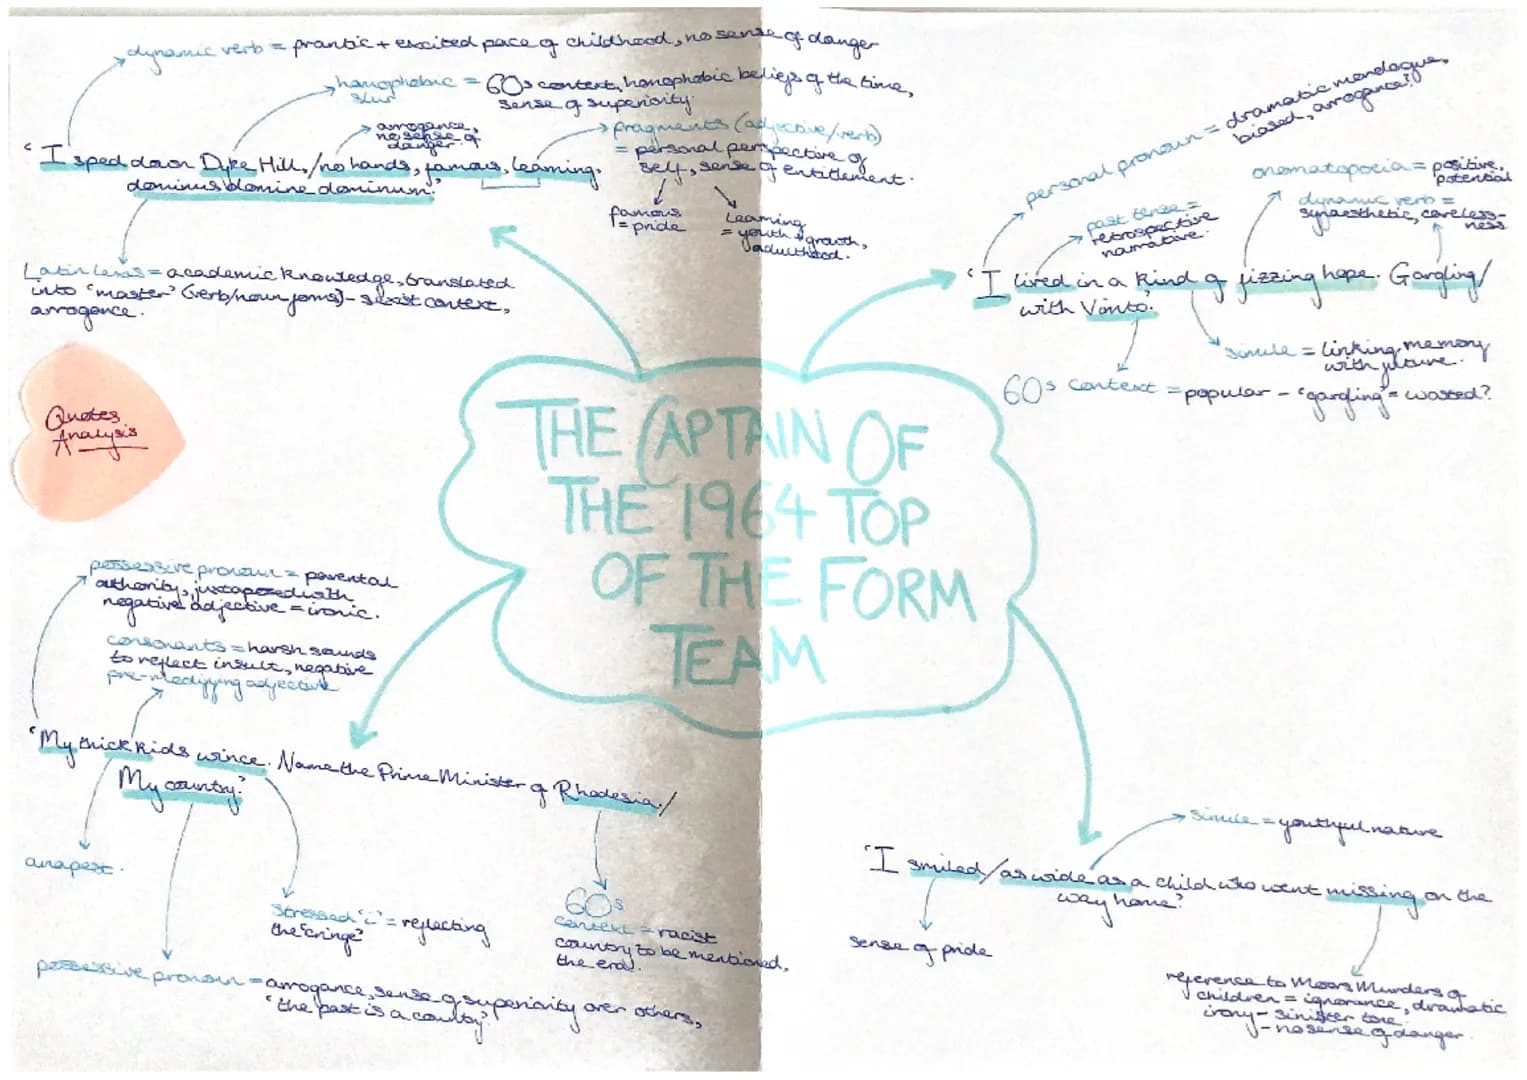 dynamic verb = frantic + excited pace of childhood, no sense of danger
homophobic slur = 60s context, homophobic beliefs of the time,
sense of superiority.
arrogance,
no sense of
danger.
fragments (adjective/verb)
= personal perspective of
self, sense of entitlement.
famous
= pride
learning
= youth + growth,
adulthood.
'I sped down Dyke Hill,/no hands, famous, learning,
dominus domine dominum.'
Latin lexis = academic knowledge, translated
into 'master' (verb/noun forms) - sexist context,
arrogance.
personal pronoun = dramatic monologue,
biased, arrogance?
past tense =
retrospective
narrative.
onomatopoeia = positive,
potential
dynamic verb =
synaesthetic, careless-
ness
'I lived in a kind of fizzing hope. Gargling/
with Vimto.'
simile = linking memory
with future.
60s context = popular - 'gargling' = wasted?
Quotes
Analysis
THE CAPTAIN OF
THE 1964 TOP
OF THE FORM
TEAM
possessive pronoun = parental
authority, juxtaposed with
negative adjective = ironic.
consonants = harsh sounds
to reflect insult, negative
pre-modifying adjective
'My thick kids wince. Name the Prime Minister of Rhodesia./
My country.'
anapest.
stressed 'i' = reflecting
the 'cringe'
60s
context = racist
country to be mentioned,
the era).
possessive pronoun = arrogance, sense of superiority over others,
'the past is a country'.
simile = youthful nature
'I smiled/as wide as a child who went missing on the
way home.'
sense of pride
reference to Moors Murders of
children = ignorance, dramatic
irony - sinister tone.
- no sense of danger.